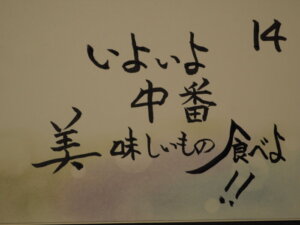 14
いよいよ
中番
美味しいもの食べよ
!!